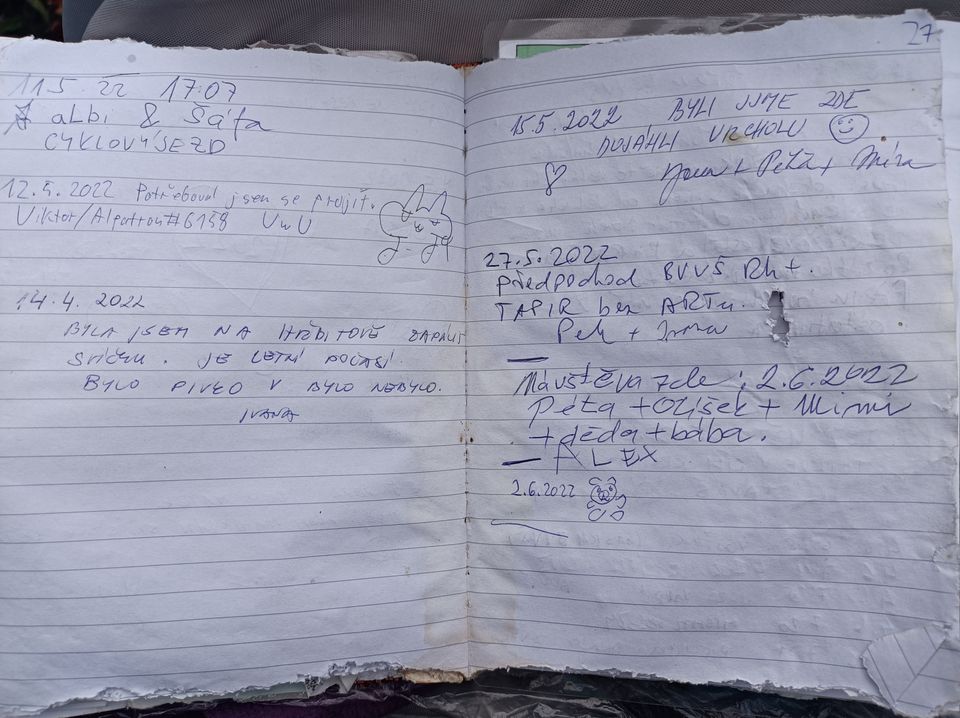 11.5. 22 17:07
albi & Šáfa
CYKLOVÝJEZD
12.5.2022 Potřeboval jsem se projít.
Viktor/Alpatron#6158 UwU
14.4. 2022
BYLA JSEM NA HŘBITOVĚ ZAPÁLIT
SVÍČKU. JE LETNÍ POČASÍ.
BYLO PIVEO V BYLO NEBYLO.
IVANA
27.
15.5.2022, BYLI JSME ZDE
DOSÁHLI VRCHOLU
+ Péťa + Míra
27.5.2022
Předpochod BVVŠ Rh+.
TAPIR bez ARTu.
Petr +
Návštěva zde: 2.6.2022
Péťa + Oříšek + Mimi
+ děda + bába.
– ALEX
2.6.2022